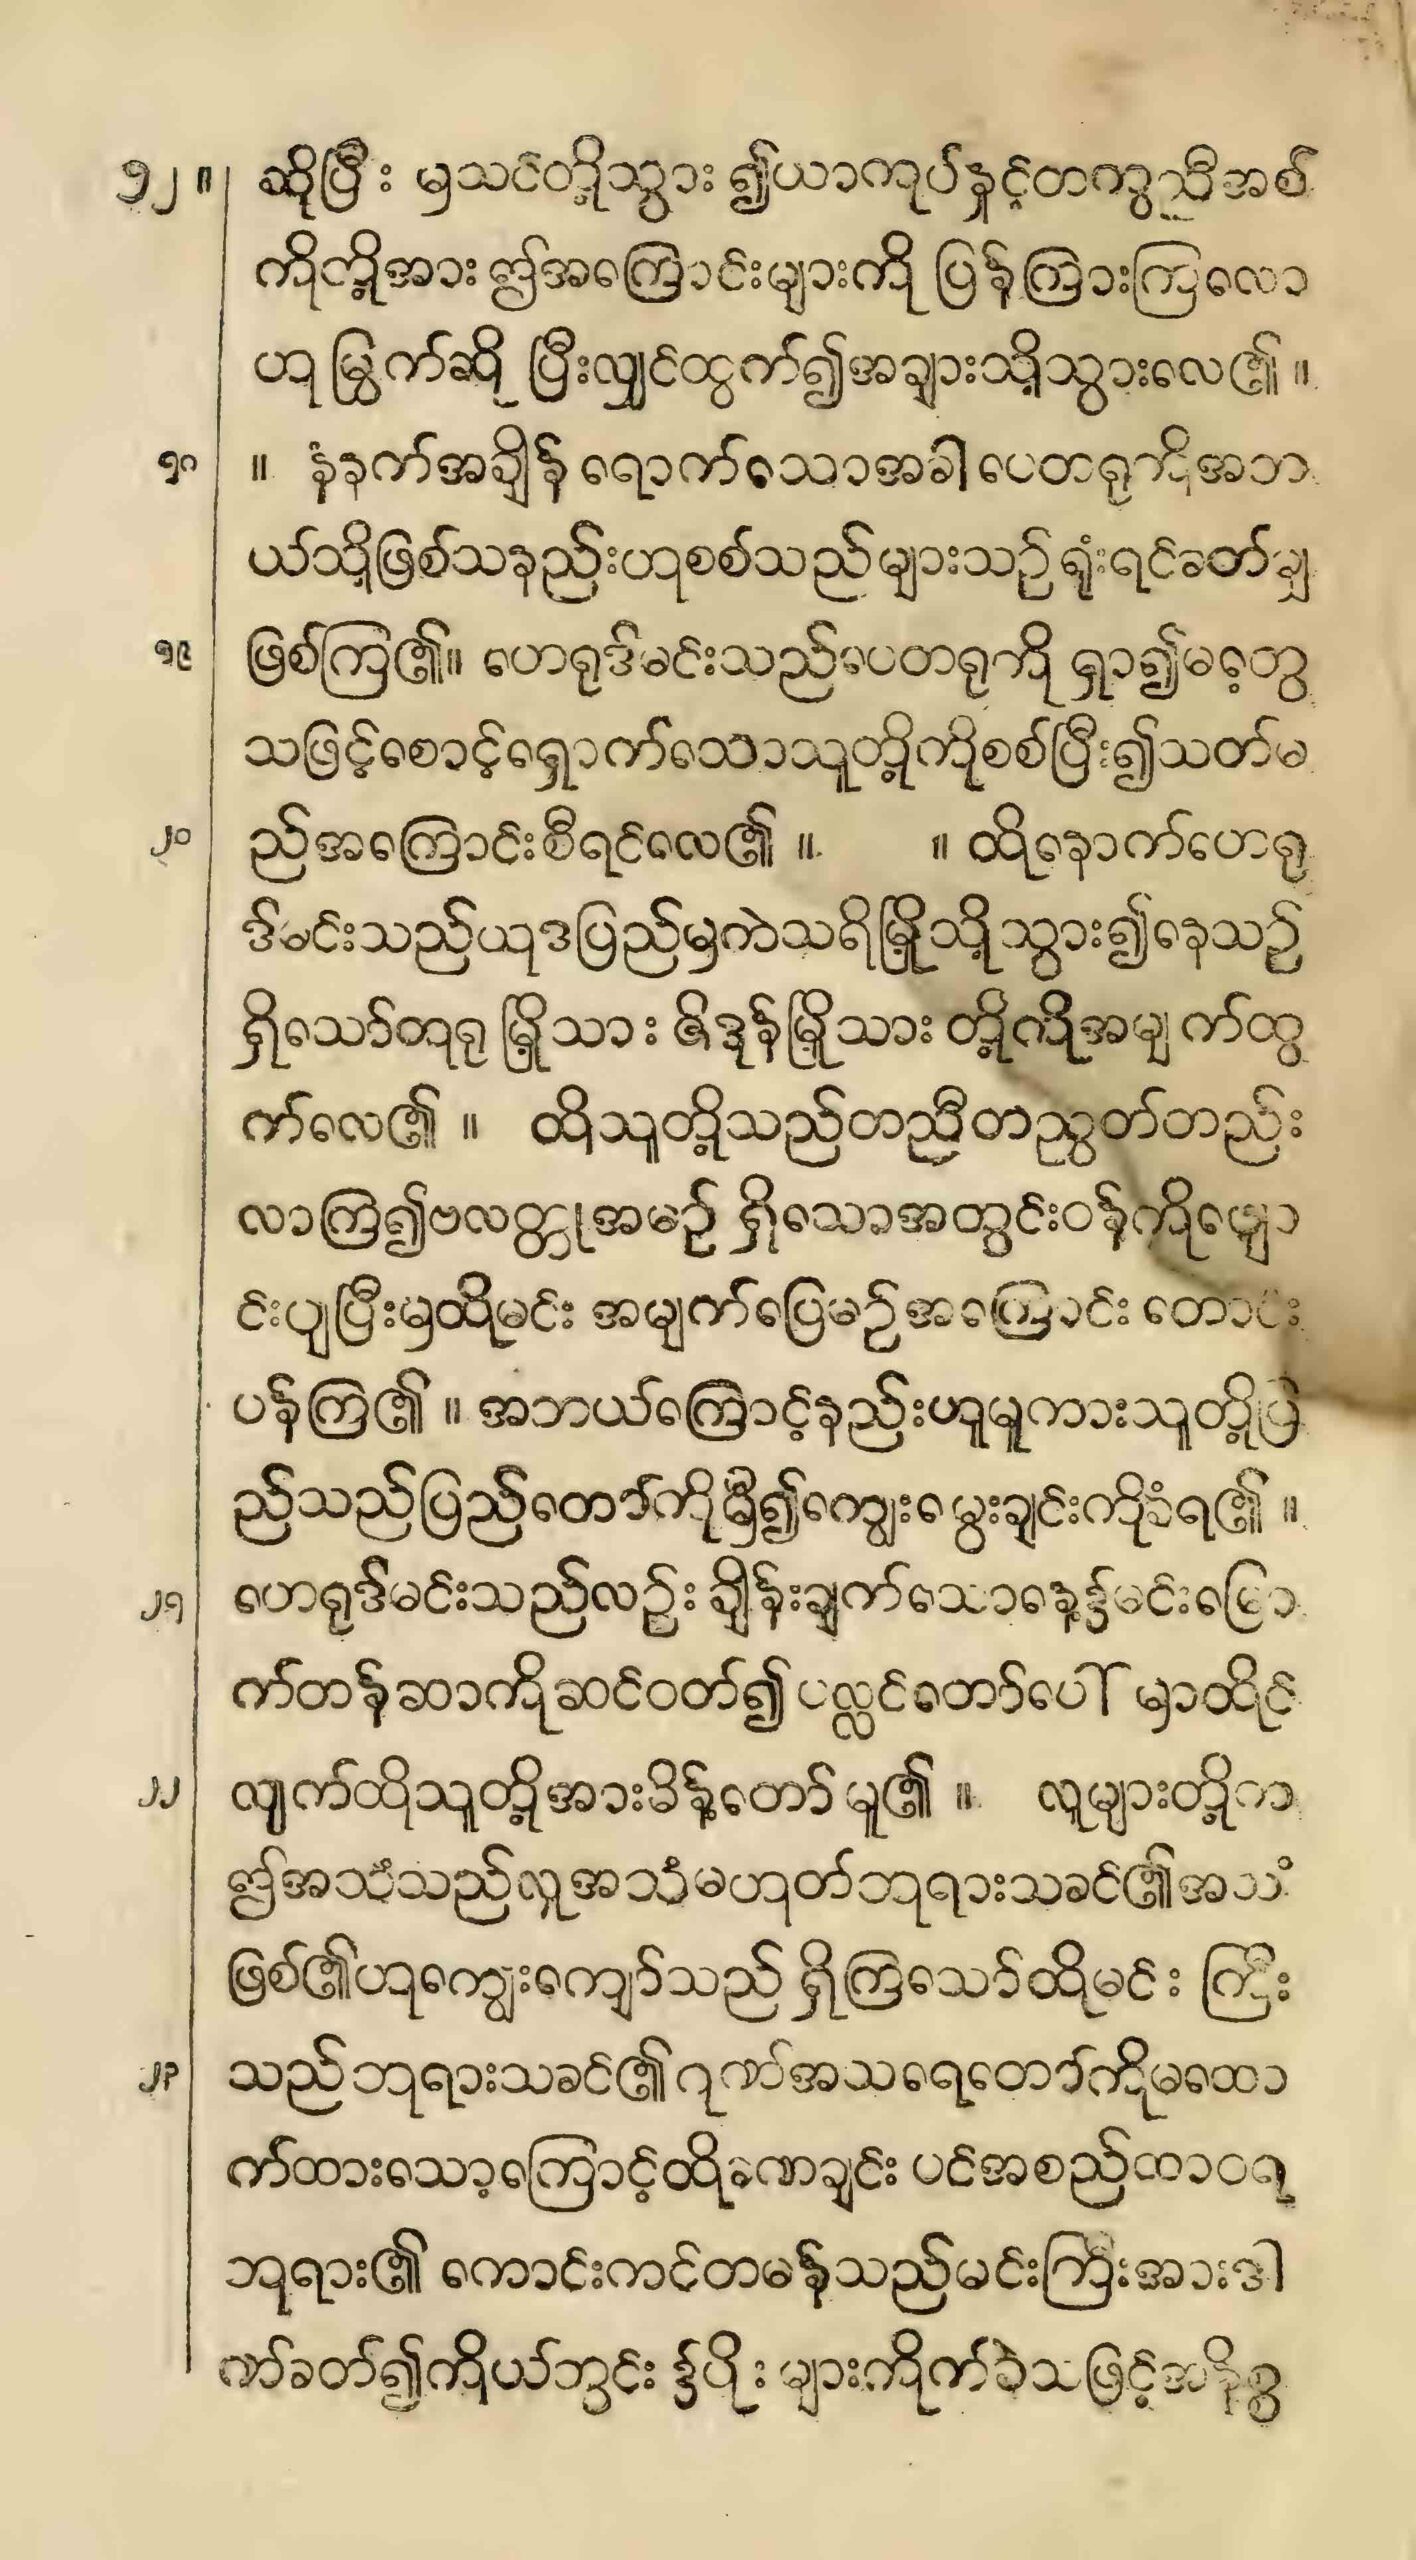 ၁၂ ။ ဆိုပြီး မှသင်တို့သွား ၍ယာကုပ်နှင့်တကွညီအစ်
ကိုတို့အား ဤအကြောင်းများကို ပြန်ကြားကြလော
ဟု မြွက်ဆို ပြီးလျှင်ထွက်၍အခြားသို့သွားလေ၏ ။
၁၈ ။ နံနက်အချိန် ရောက်သောအခါ ပေတရုကိုအဘ
ယ်သို့ဖြစ်သနည်းဟုစစ်သည်များသဉ် ရုံးရင်ခတ်မျှ
၁၉ ဖြစ်ကြ၏။ ဟေရုဒ်မင်းသည်ပေတရုကို ရှာ၍မငွေ့တွ
သဖြင့်စောင့်ရှောက်သောသူတို့ကိုစစ်ပြီး၍သတ်မ
၂၀ ည်အကြောင်းစီရင်လေ၏ ။ ။ ထိုနောက်ဟေရု
ဒ်မင်းသည်ယုဒပြည်မှကဲသရိမြို့သို့သွား၍နေသဉ်
ရှိသော်တုရု မြို့သား ဇိဒုန်မြို့သား တို့ကိုအမျက်ထွ
က်လေ၏ ။ ထိုသူတို့သည်တညီတညွတ်တည်း
လာကြ၍ဗလတ္တုအမဉ် ရှိသောအတွင်းဝန်ကိုဖျော
င်းပျပြီးမှထိုမင်း အမျက်ပြေမဉ်အကြောင်း တောင်း
ပန်ကြ၏ ။ အဘယ်ကြောင့်နည်းဟူမူကားသူတို့ပြ
ည်သည်ပြည်တော်ကိုမှီ၍ကျွေးမွေးချင်းကိုခံရ၏ ။
၂၁ ဟေရုဒ်မင်းသည်လဉ်း ချိန်းချက်သောနေ့၌မင်းမြော
က်တန်ဆာကိုဆင်ဝတ်၍ ပလ္လင်တော်ပေါ် မှာထိုင်
၂၂ လျက်ထိုသူတို့အားမိန့်တော် မူ၏ ။ လူများတို့က
ဤအသံသည်လူအသံမဟုတ်ဘုရားသခင်၏အသံ
ဖြစ်၏ဟုကျွေးကျော်သည် ရှိကြသော်ထိုမင်း ကြီး
၂၃ သည်ဘုရားသခင်၏ဂုဏ်အသရေတော်ကိုမထော
က်ထားသော့ကြောင့်ထိုခဏချင်း ပင်အစည်ထာဝရ
ဘုရား၏ ကောင်းကင်တမန်သည်မင်းကြီးအားဒါ
ဏ်ခတ်၍ကိုယ်တွင်း ၌ပိုး များကိုက်ခဲသဖြင့်အနိစ္စ